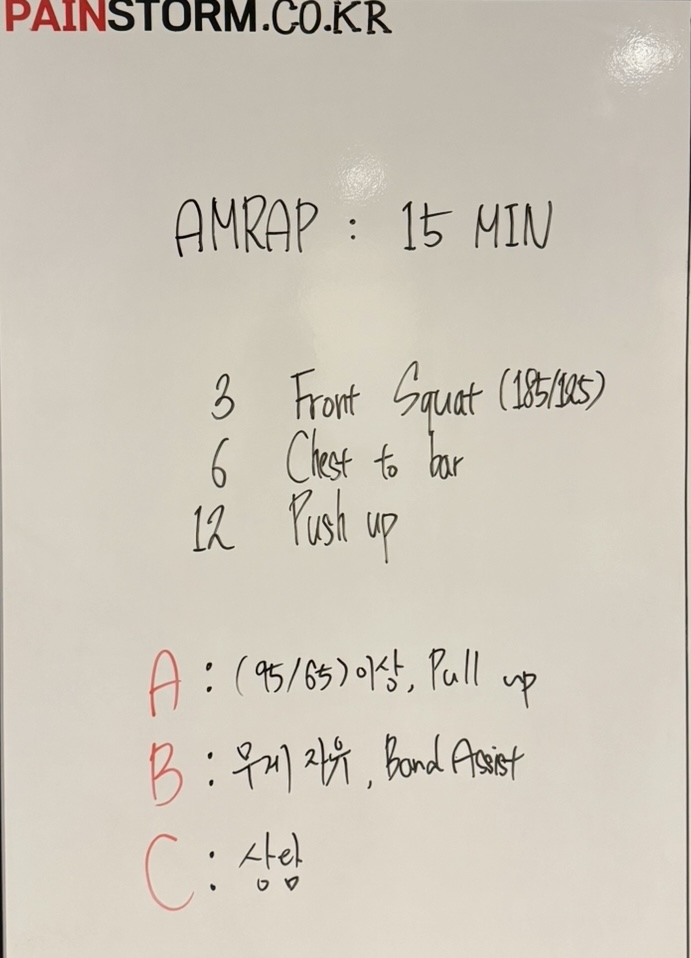 PAINSTORM.CO.KR
AMRAP : 15 MIN
3 Front Squat (185/125)
6 Chest to bar
12 Push up
A : (95/65)이상, Pull up
B : 무게 자유, Band Assist
C : 상담